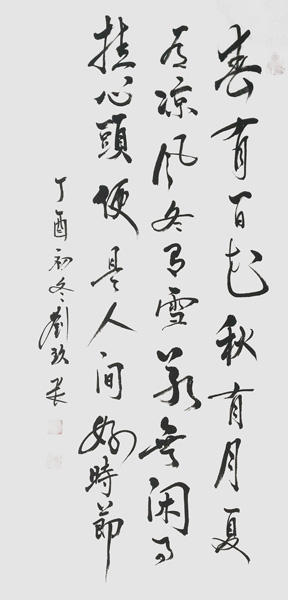 春有百花秋有月夏
有凉风冬有雪若無闲事
挂心頭便是人间好時節
丁酉初冬劉玖